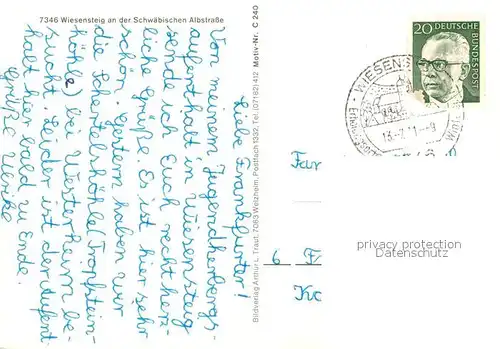 7346 Wiesensteig an der Schwäbischen Albstraße
Liebe Frankfurter!
Von meinem Jugendherbergs-
aufenthalt in Wiesensteig
sende ich Euch recht herz-
liche Grüße. Es ist hier sehr
schön. Gestern haben wir
die Schertelshöhle (Tropfstein-
höhle) bei Westerheim be-
sucht. Leider ist der Aufent-
halt hier bald zu Ende.
Grüße Ulrike
Bildverlag Arthur L. Traut, 7063 Welzheim, Postfach 1332, Tel. (07182) 412 Motiv-Nr. C 240
20 DEUTSCHE
BUNDESPOST
WIESENS
Fa
6 F
privacy protection
Datenschutz